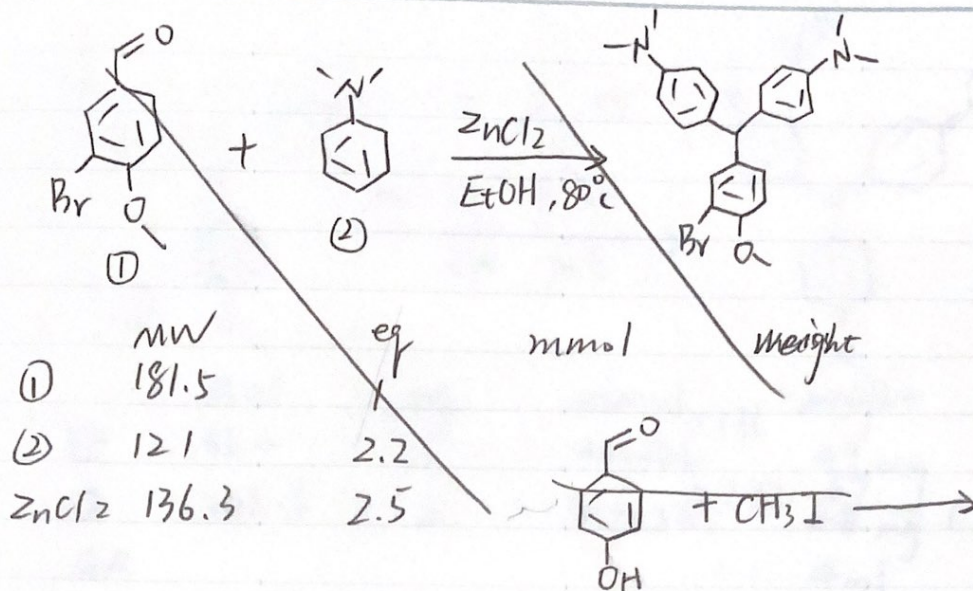 O
N
N
N
+
ZnCl2
EtOH, 80°C
Br
O
①
②
Br
O
MW eq mmol weight
① 181.5 1
② 121 2.2
ZnCl2 136.3 2.5
O
+ CH3I
OH